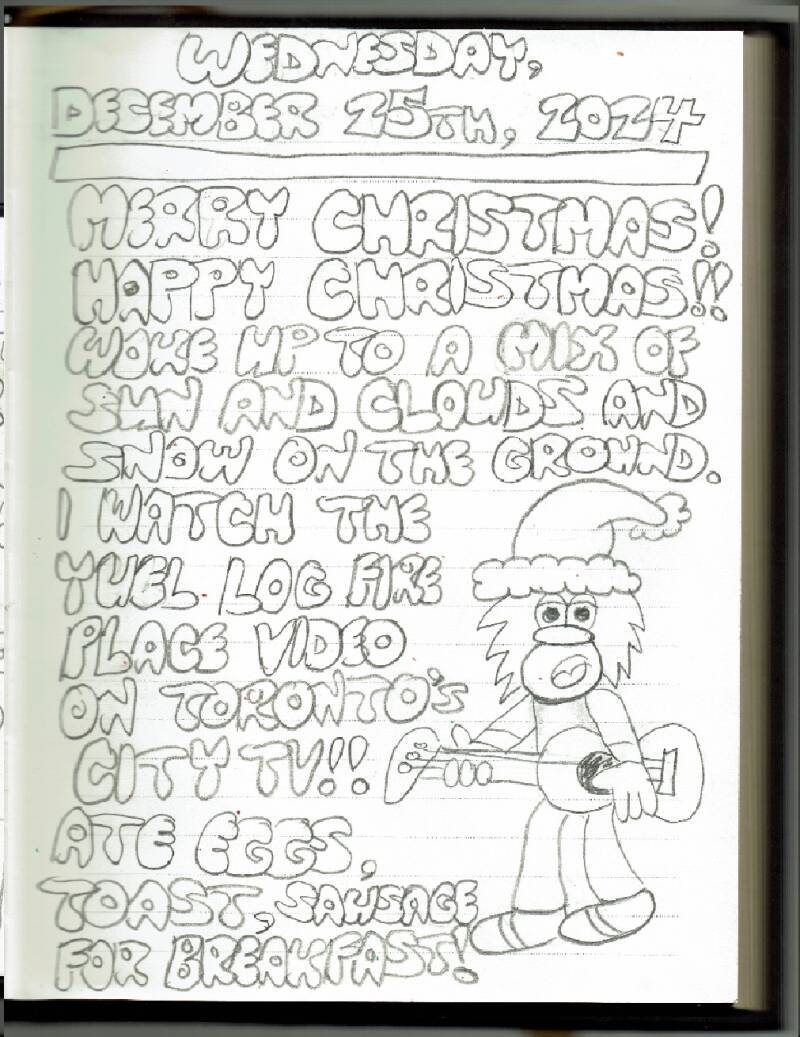 WEDNESDAY,
DECEMBER 25TH, 2024
MERRY CHRISTMAS!
HAPPY CHRISTMAS!!
WOKE UP TO A MIX OF
SUN AND CLOUDS AND
SNOW ON THE GROUND.
I WATCH THE
YUEL LOG FIRE
PLACE VIDEO
ON TORONTO'S
CITY TV!!
ATE EGGS,
TOAST, SAUSAGE
FOR BREAKFAST!